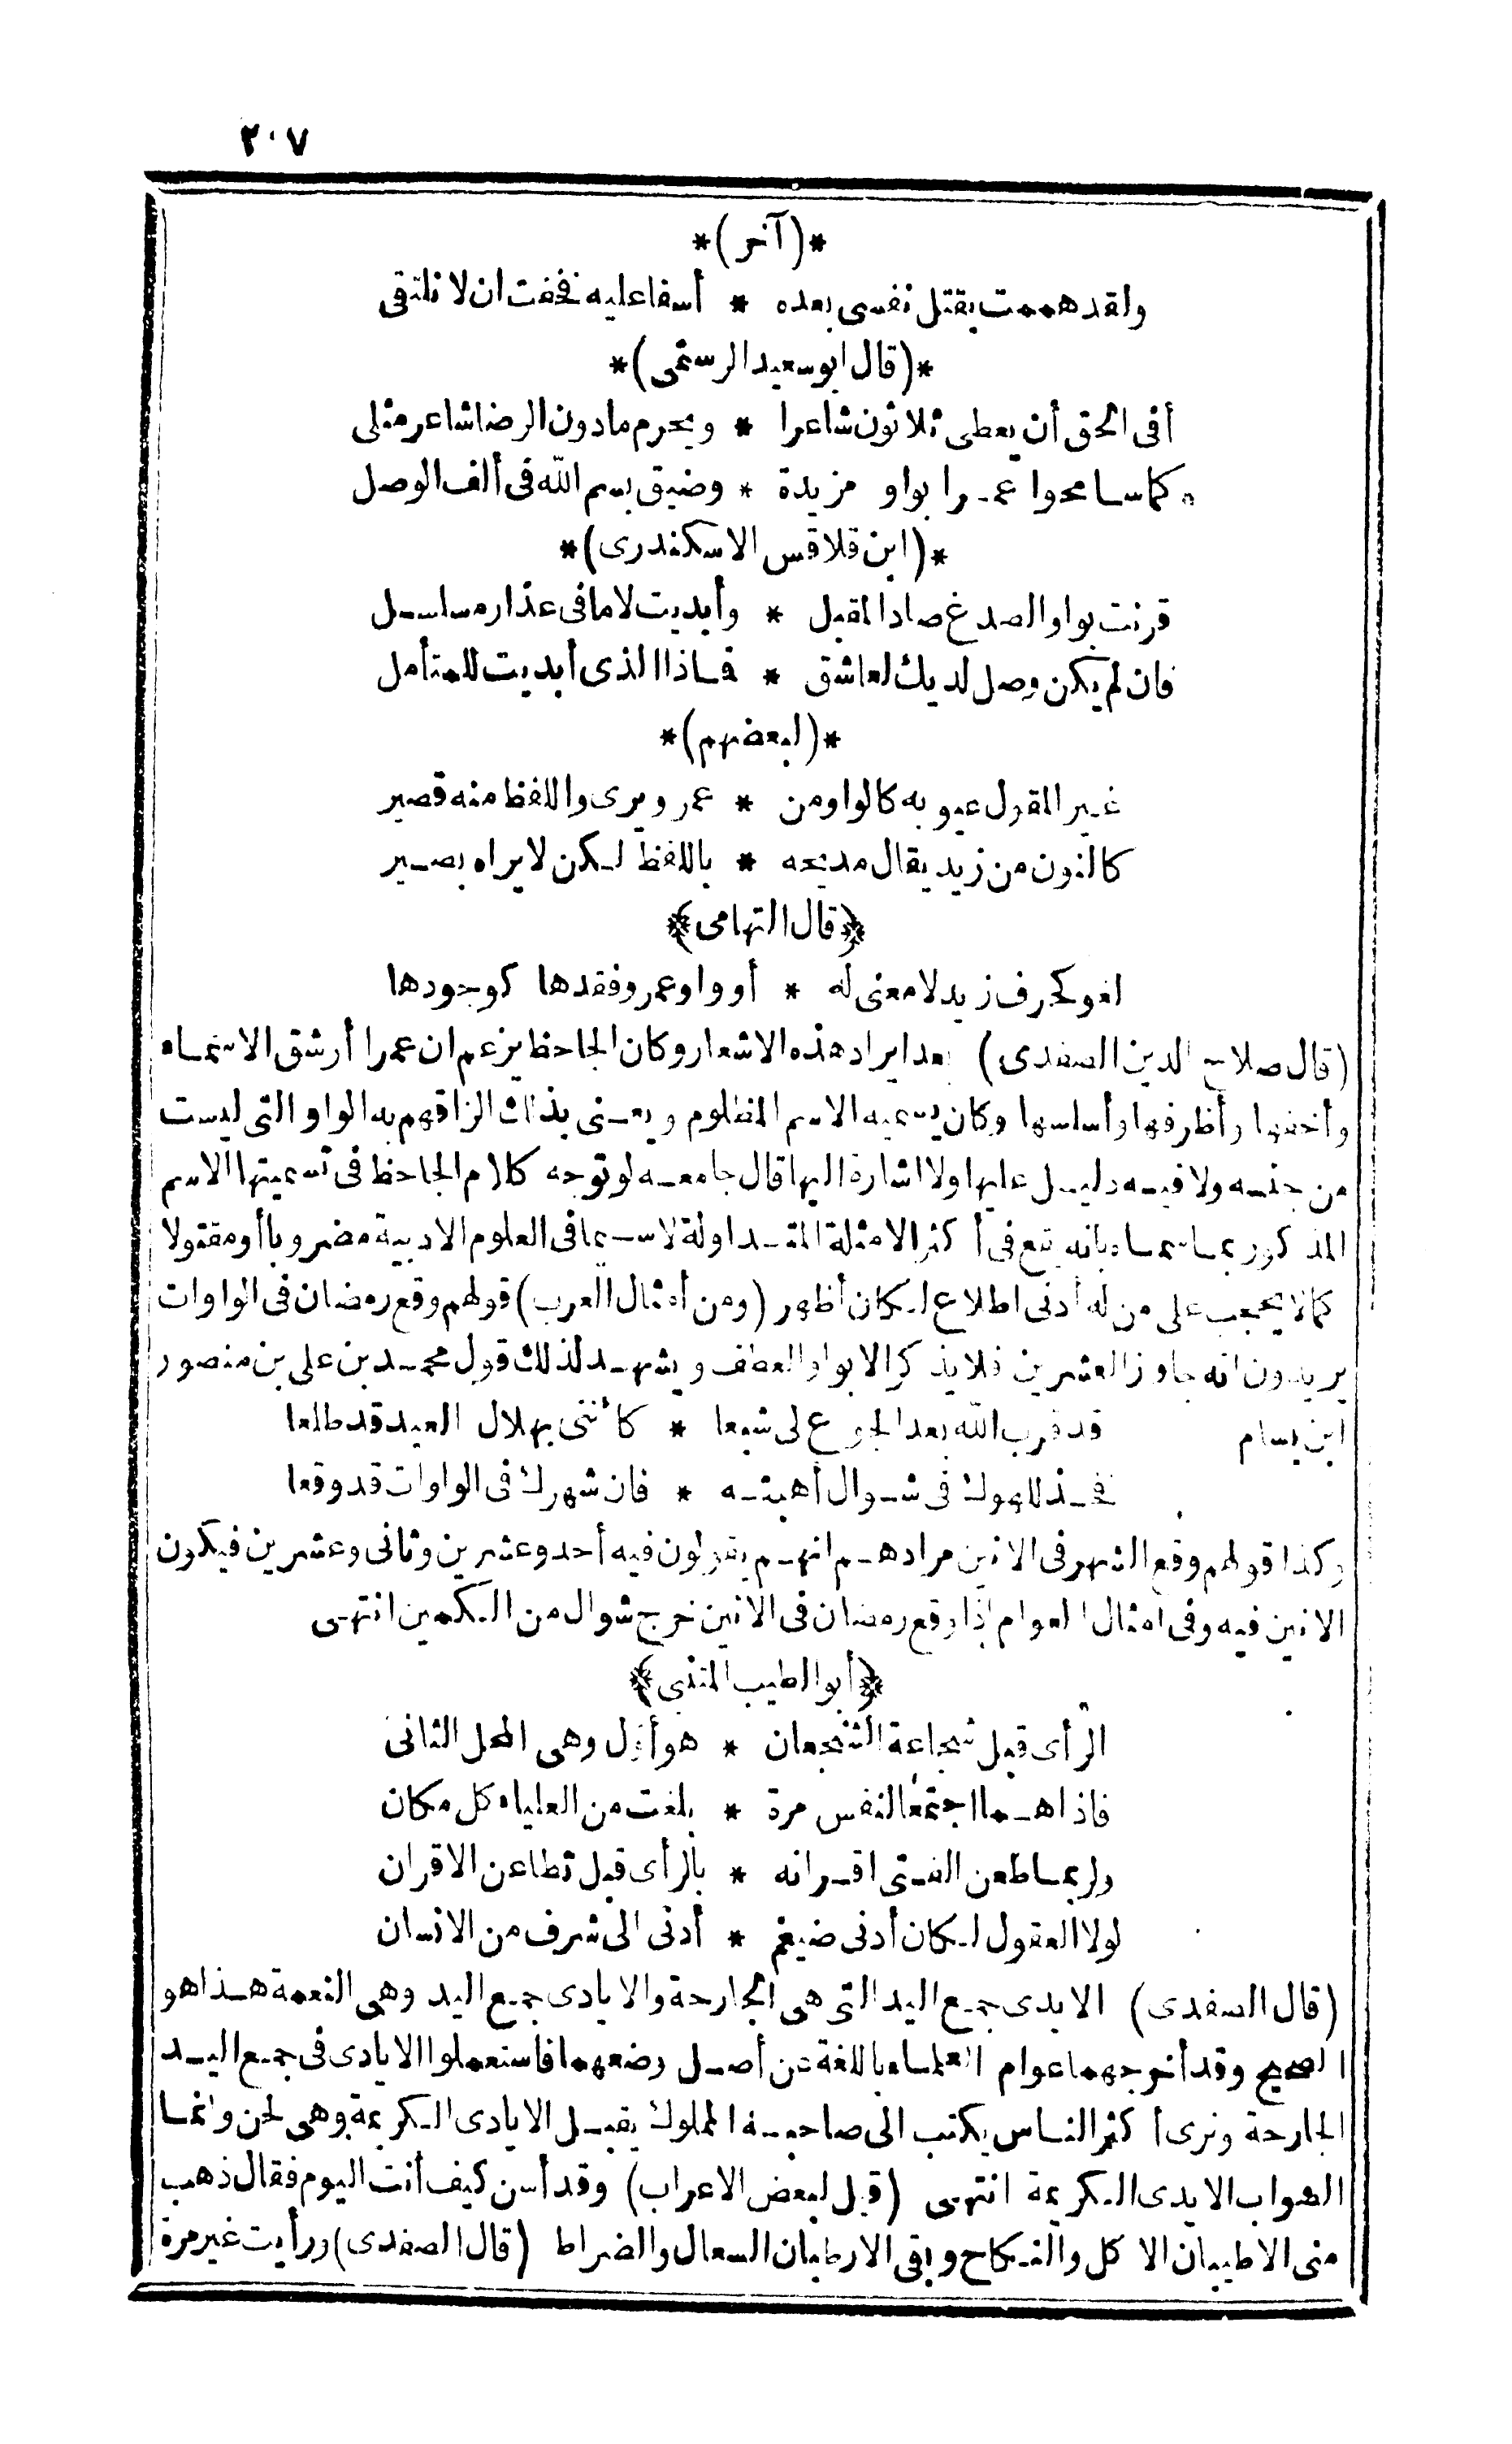 ٢٠٧
*(آخر)*
ولقد هممت بقتل نفسى بعده * أسفا عليه فخفت ان لا نلتقى
*(قال ابو سعيد الرستمى)*
أفى الحق أن يعطى ثلاثون شاعرا * ويحرم ما دون الرضا شاعر مثلى
كما سامحوا عمرا بواو مزيدة * وضيق بسم الله فى ألف الوصل
*(ابن قلاقس الاسكندرى)*
قرنت بواو الصدغ صاد المقبل * وأبديت لاما فى عذار مسلسل
فان لم يكن وصل لديك لعاشق * فماذا الذى أبديت للمتأمل
*(لبعضهم)*
غير المقول عيوبه كالواو من * عمرو يرى واللفظ منه قصير
كالنون من زيد يقال مديحه * باللفظ لكن لا يراه بصير
﴿قال التهامى﴾
لغو كحرف زيد لا معنى له * أو واو عمرو فقدها كوجودها
(قال صلاح الدين الصفدى) بعد ايراد هذه الاشعار وكان الجاحظ يزعم ان عمرا أرشق الاسماء
وأخفها وأظرفها وأسلسها وكان يسميه الاسم المظلوم ويعنى بذلك الزاقهم به الواو التى ليست
من جنسه ولا فيه دليل عليها ولا اشارة اليها قال جامعه لو توجه كلام الجاحظ فى تسميتها الاسم
المذكور بما سماه بانه يقع فى أكثر الامثلة المتداولة لا سيما فى العلوم الادبية مضروبا أو مقتولا
كما لا يحجب على من له أدنى اطلاع لكان أظهر (ومن أمثال العرب) قولهم وقع رمضان فى الواوات
يريدون انه جاوز العشرين فلا يذكر الا بواو العطف ويشهد لذلك قول محمد بن على بن منصور
ابن بسام قد قرب الله بعد الجوع لى شبعا * كأننى بهلال العيد قد طلعا
فخذ للهوك فى شوال أهبته * فان شهرك فى الواوات قد وقعا
وكذا قولهم وقع الشهر فى الانين مرادهم انهم يقولون فيه أحد وعشرين وثانى وعشرين فيكون
الانين فيه وفى امثال العوام اذا وقع رمضان فى الانين خرج شوال من الكمين انتهى
﴿أبو الطيب المتنبى﴾
الرأى قبل شجاعة الشجعان * هو أول وهى المحل الثانى
فاذا هما اجتمعا لنفس مرة * بلغت من العلياء كل مكان
ولربما طعن الفتى اقرانه * بالرأى قبل تطاعن الاقران
لولا العقول لكان أدنى ضيغم * أدنى الى شرف من الانسان
(قال الصفدى) الايدى جمع اليد التى هى الجارحة والايادى جمع اليد وهى النعمة هذا هو
الصحيح وقد أخرجهما عوام العلماء باللغة عن أصل وضعهما فاستعملوا الايادى فى جمع اليد
الجارحة ونرى أكثر الناس يكتب الى صاحبه المملوك يقبل الايادى الكريمة وهى لحن وانما
الصواب الايدى الكريمة انتهى (قيل لبعض الاعراب) وقد أسن كيف أنت اليوم فقال ذهب
منى الاطيبان الاكل والنكاح وبقى الارطبان السعال والضراط (قال الصفدى) ورأيت غير مرة